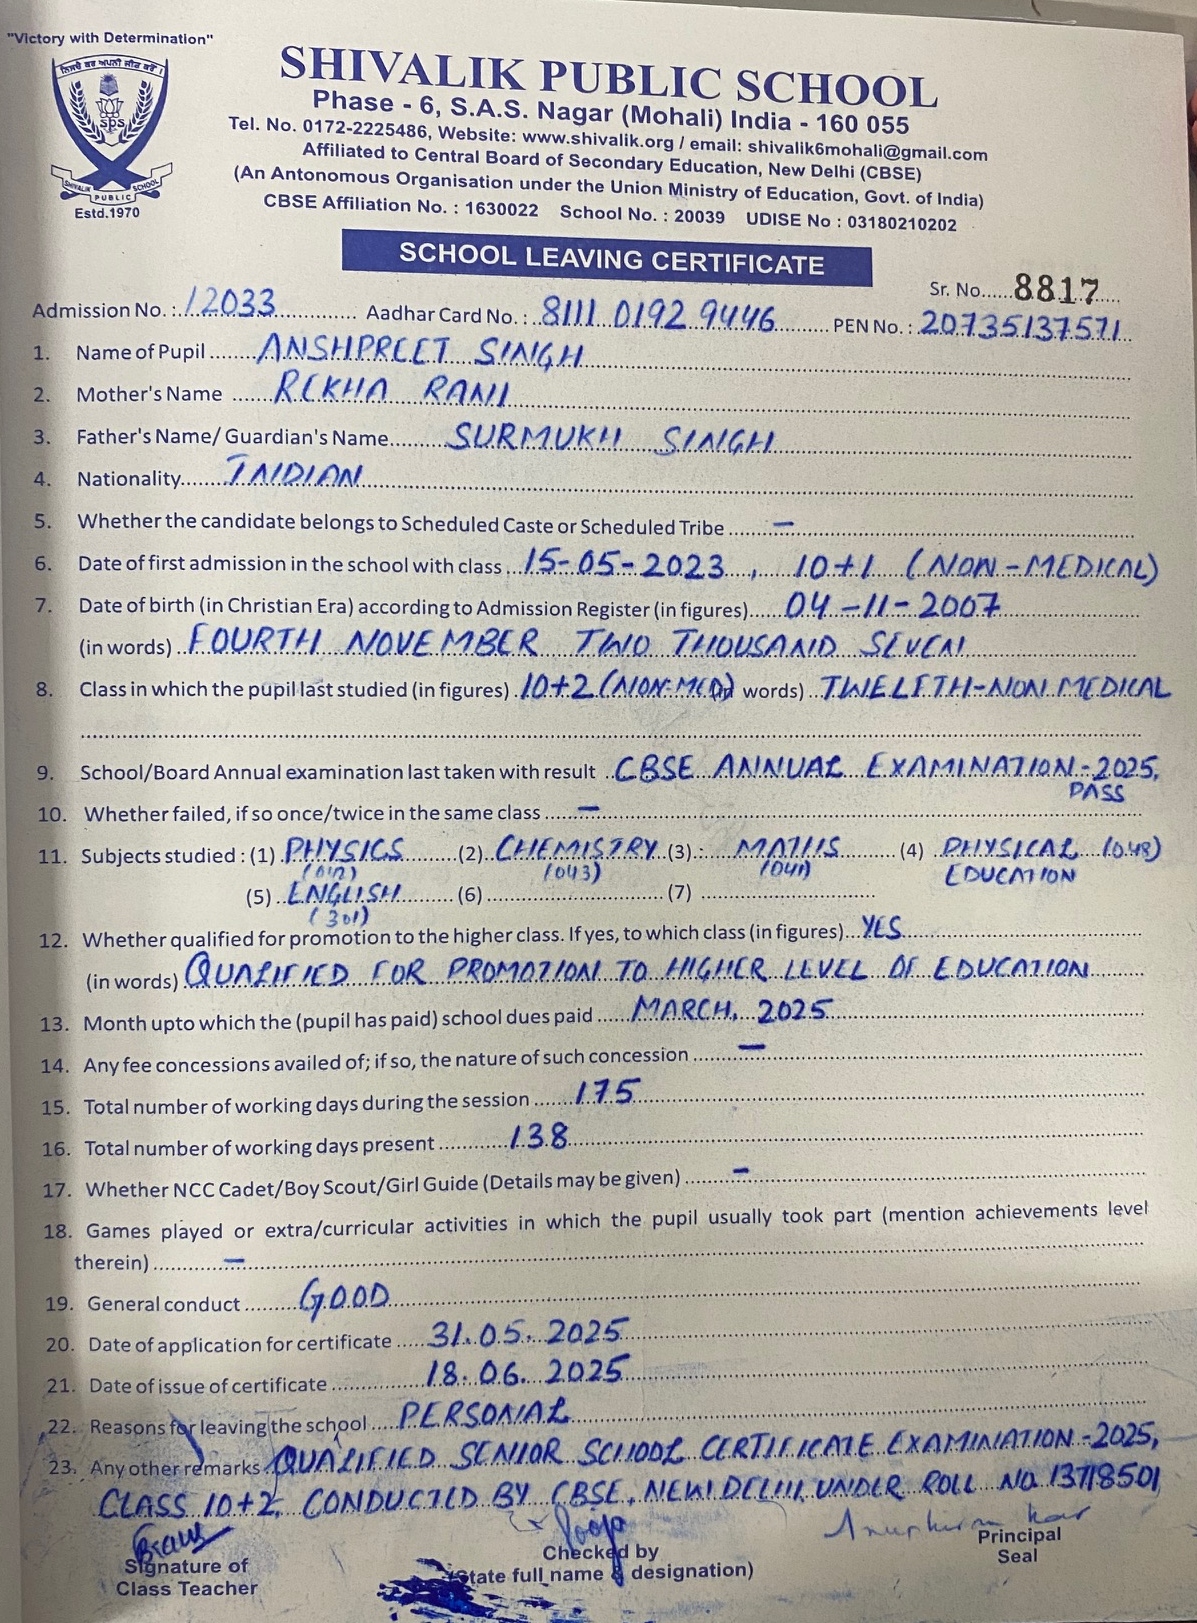 "Victory with Determination"
ਨਿਸਚੈ ਕਰ ਅਪਨੀ ਜੀਤ ਕਰੋਂ ।
SPS
SHIVALIK PUBLIC SCHOOL
Estd.1970
SHIVALIK PUBLIC SCHOOL
Phase - 6, S.A.S. Nagar (Mohali) India - 160 055
Tel. No. 0172-2225486, Website: www.shivalik.org / email: shivalik6mohali@gmail.com
Affiliated to Central Board of Secondary Education, New Delhi (CBSE)
(An Antonomous Organisation under the Union Ministry of Education, Govt. of India)
CBSE Affiliation No. : 1630022 School No. : 20039 UDISE No : 03180210202
SCHOOL LEAVING CERTIFICATE
Sr. No......8817....
Admission No. : 12033 Aadhar Card No. : 8111 0192 9446 PEN No. : 20735137571
1. Name of Pupil ANSHPREET SINGH
2. Mother's Name REKHA RANI
3. Father's Name/ Guardian's Name SURMUKH SINGH
4. Nationality INDIAN
5. Whether the candidate belongs to Scheduled Caste or Scheduled Tribe –
6. Date of first admission in the school with class 15-05-2023, 10+1 (NON-MEDICAL)
7. Date of birth (in Christian Era) according to Admission Register (in figures) 04-11-2007
(in words) FOURTH NOVEMBER TWO THOUSAND SEVEN
8. Class in which the pupil last studied (in figures) 10+2 (NON-MED) (in words) TWELFTH-NON MEDICAL
9. School/Board Annual examination last taken with result CBSE ANNUAL EXAMINATION-2025,
PASS
10. Whether failed, if so once/twice in the same class –
11. Subjects studied : (1) PHYSICS (2) CHEMISTRY (3) : MATHS (4) PHYSICAL (048)
(042) (043) (041) EDUCATION
(5) ENGLISH (6) (7)
(301)
12. Whether qualified for promotion to the higher class. If yes, to which class (in figures) YES
(in words) QUALIFIED FOR PROMOTION TO HIGHER LEVEL OF EDUCATION
13. Month upto which the (pupil has paid) school dues paid MARCH, 2025
14. Any fee concessions availed of; if so, the nature of such concession –
15. Total number of working days during the session 175
16. Total number of working days present 138
17. Whether NCC Cadet/Boy Scout/Girl Guide (Details may be given) –
18. Games played or extra/curricular activities in which the pupil usually took part (mention achievements level
therein) –
19. General conduct GOOD
20. Date of application for certificate 31.05.2025
21. Date of issue of certificate 18.06.2025
22. Reasons for leaving the school PERSONAL
23. Any other remarks QUALIFIED SENIOR SCHOOL CERTIFICATE EXAMINATION-2025,
CLASS 10+2, CONDUCTED BY CBSE, NEW DELHI, UNDER ROLL NO. 13718501
Signature of
Class Teacher
Checked by
(State full name & designation)
Principal
Seal